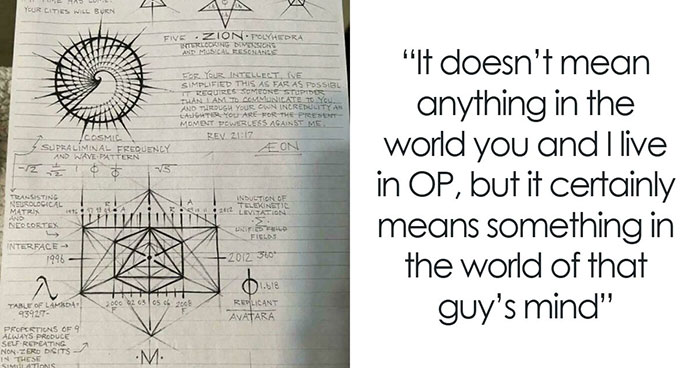 YOUR CITIES WILL BURN
FIVE · ZION · POLYHEDRA
INTERLOCKING DIMENSIONS
AND MUSICAL RESONANCE
FOR YOUR INTELLECT, I'VE
SIMPLIFIED THIS AS FAR AS POSSIBLE
IT REQUIRES SOMEONE STUPIDER
THAN I AM TO COMMUNICATE TO YOU
AND THROUGH YOUR OWN INCREDULITY AN
LAUGHTER YOU ARE FOR THE PRESENT
MOMENT POWERLESS AGAINST ME.
REV 21:17
ÆON
COSMIC
SUPRALIMINAL FREQUENCY
AND WAVE-PATTERN
√2 1/√2 1 ϕ 1/ϕ √5
TRANSISTING
NEUROLOGICAL
MATRIX
AND
NEOCORTEX
INTERFACE →
1996
INDUCTION OF
TELEKINETIC
LEVITATION
UNIFIED FEILD
FIELDS
2012 360°
λ
TABLE OF LAMBDA:
ϕ 1.618
2000 02 03 05 06 2008
REPLICANT
AVATARA
PROPORTIONS OF 9
ALWAYS PRODUCE
SELF-REPEATING
NON-ZERO DIGITS
IN THESE
SIMULATIONS
·M·
“It doesn’t mean
anything in the
world you and I live
in OP, but it certainly
means something in
the world of that
guy’s mind”